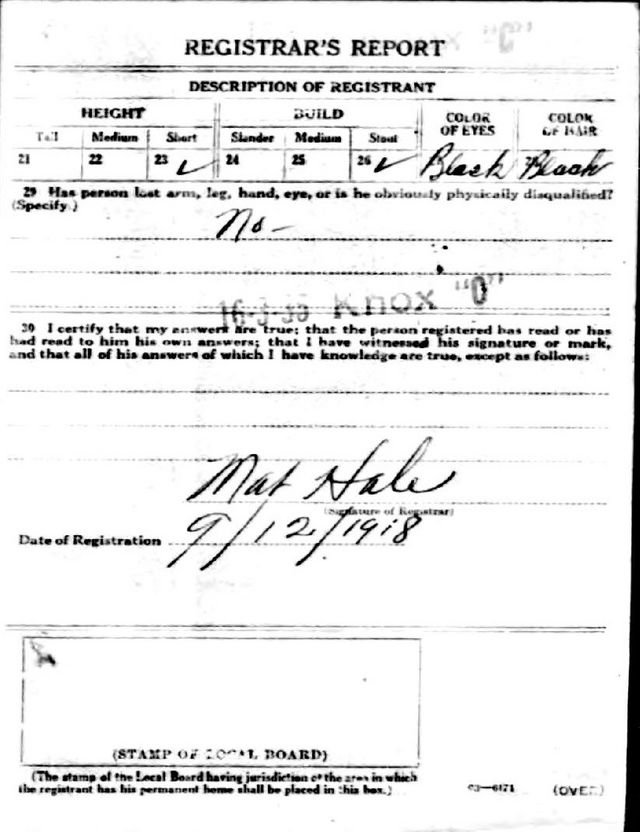 REGISTRAR'S REPORT "C"
DESCRIPTION OF REGISTRANT
HEIGHT BUILD COLOR OF EYES COLOR OF HAIR
Tall Medium Short Slender Medium Stout
21 22 23 ✓ 24 25 26 ✓ Black Black
29 Has person lost arm, leg, hand, eye, or is he obviously physically disqualified?
(Specify.)
No -
16-3-33 Knox "O"
30 I certify that my answers are true; that the person registered has read or has
had read to him his own answers; that I have witnessed his signature or mark,
and that all of his answers of which I have knowledge are true, except as follows:
Mat Hale
(Signature of Registrar)
Date of Registration 9/12/1918
(STAMP OF LOCAL BOARD)
(The stamp of the Local Board having jurisdiction of the area in which
the registrant has his permanent home shall be placed in this box.)
03—6171 (OVER)